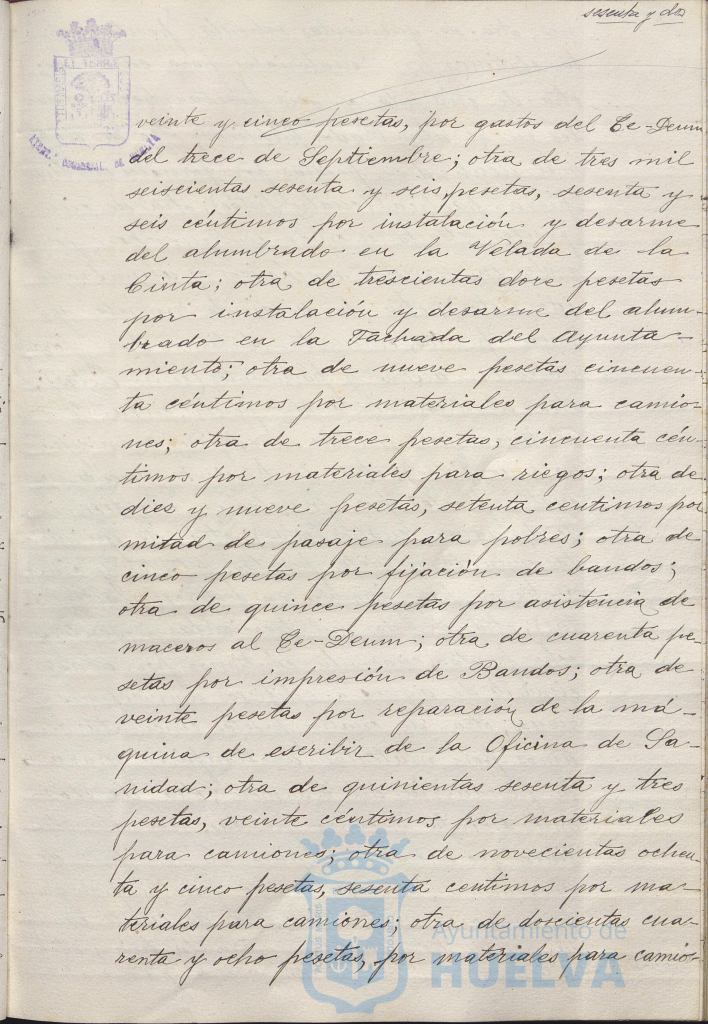 sesenta y dos
veinte y cinco pesetas, por gastos del Te-Deum
del trece de Septiembre; otra de tres mil
seiscientas sesenta y seis, pesetas, sesenta y
seis céntimos por instalación y desarme
del alumbrado en la Velada de la
Cinta; otra de trescientas doce pesetas
por instalación y desarme del alum-
brado en la Fachada del Ayunta-
miento; otra de nueve pesetas cincuen-
ta céntimos por materiales para camio-
nes; otra de trece pesetas, cincuenta cén-
timos por materiales para riegos; otra de
diez y nueve pesetas, setenta centimos por
mitad de pasaje para pobres; otra de
cinco pesetas por fijación de bandos;
otra de quince pesetas por asistencia de
maceros al Te-Deum; otra de cuarenta pe-
setas por impresión de Bandos; otra de
veinte pesetas por reparación de la má-
quina de escribir de la Oficina de Sa-
nidad; otra de quinientas sesenta y tres
pesetas, veinte céntimos por materiales
para camiones; otra de novecientas ochen-
ta y cinco pesetas, sesenta centimos por ma-
teriales para camiones; otra de doscientas cua-
renta y ocho pesetas, por materiales para camio-
Ayuntamiento de
HUELVA